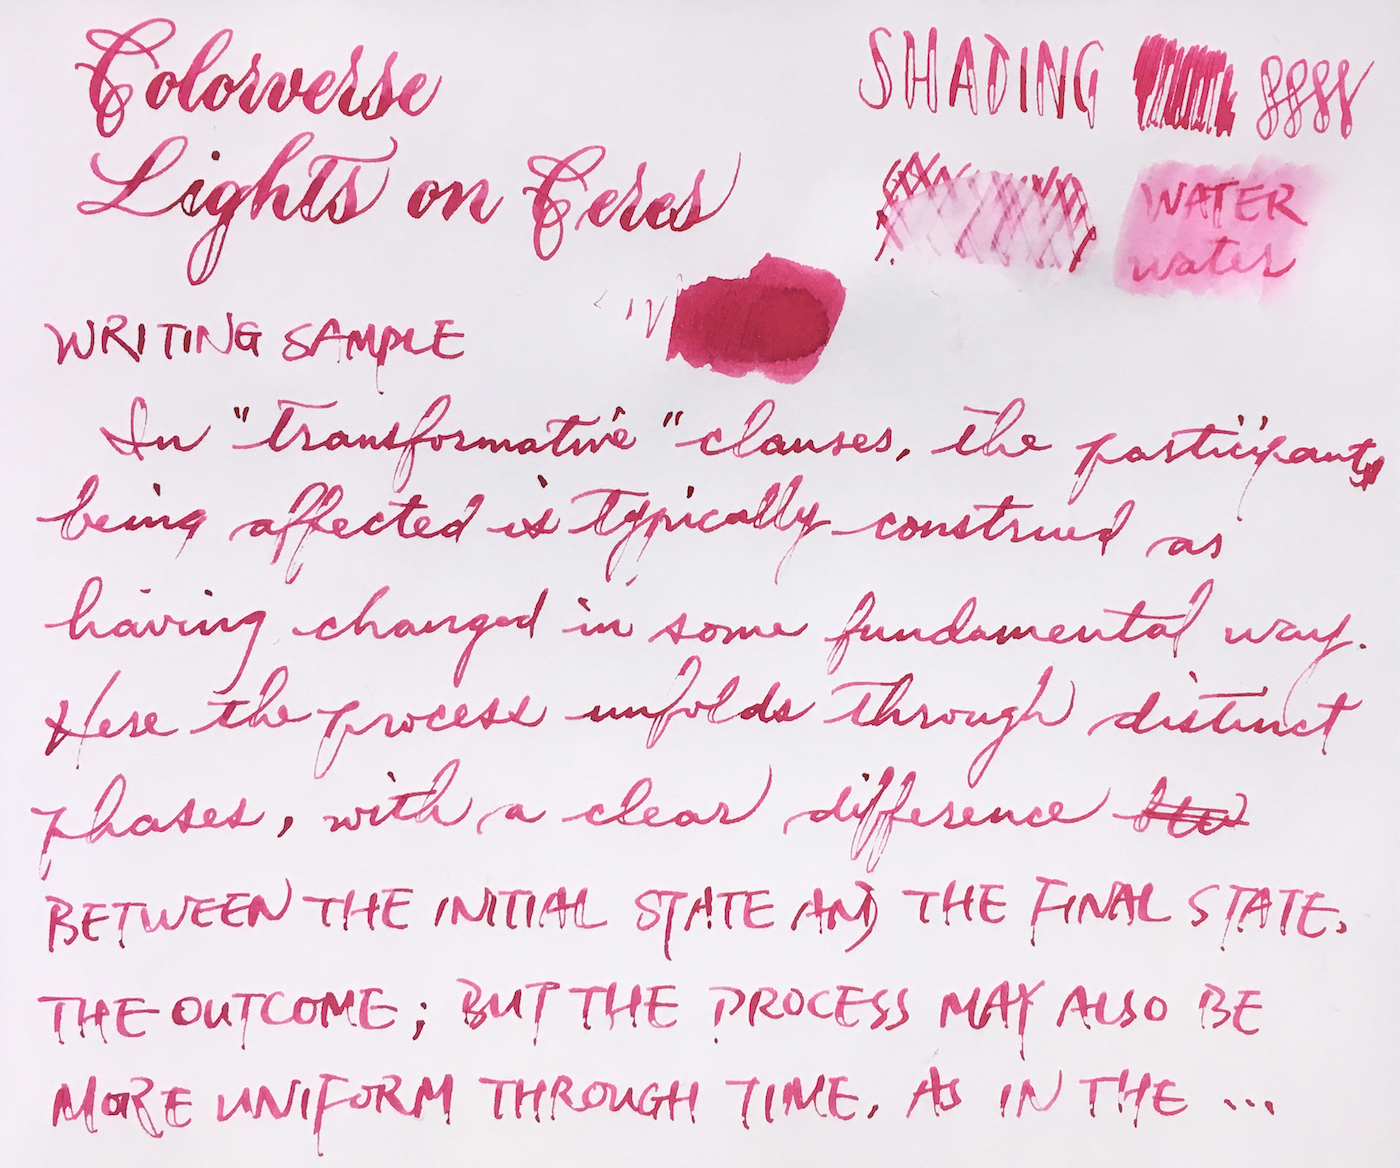 Colorverse
Lights on Ceres
SHADING
WATER
water
WRITING SAMPLE
In "transformative" clauses, the participant
being affected is typically construed as
having changed in some fundamental way.
Here the process unfolds through distinct
phases, with a clear difference
BETWEEN THE INITIAL STATE AND THE FINAL STATE,
THE OUTCOME; BUT THE PROCESS MAY ALSO BE
MORE UNIFORM THROUGH TIME, AS IN THE ...